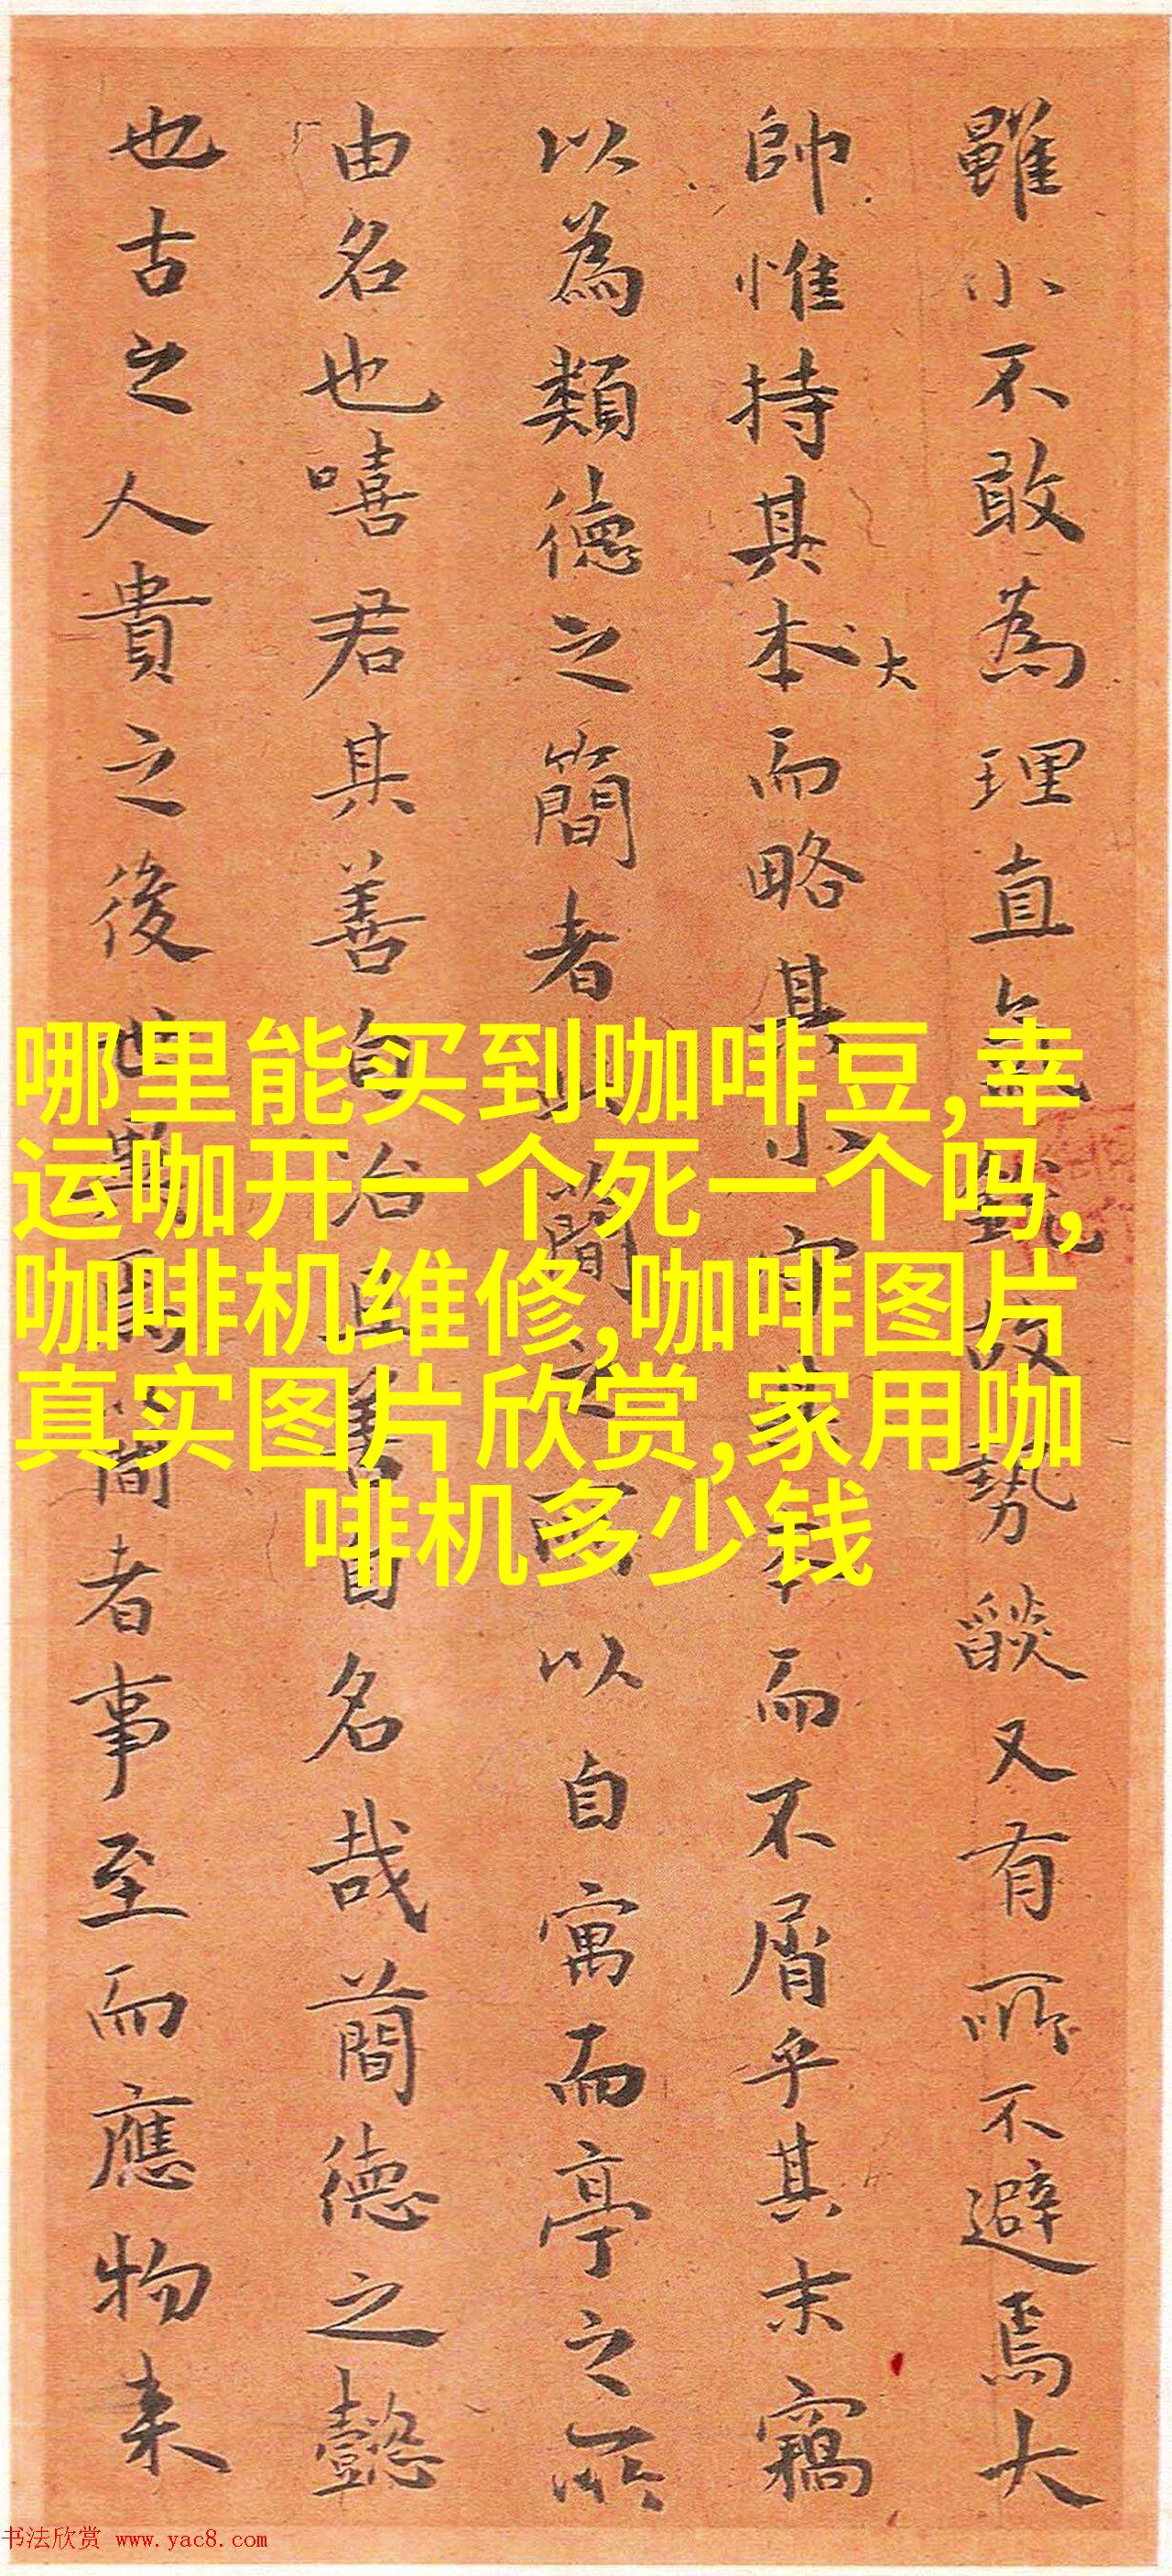 雖小不敢為理直氣龯故勢燄又有所不避焉大
帥惟持其本而略其小守其本而不屑乎其末竊
大
以為類德之簡者以簡之所以自寓而亭之所
由名也嘻君其善自治且善自名哉蕳德之懿
也古之人貴之後世異焉簡者事至而應物来
哪里能买到咖啡豆,幸
运咖开一个死一个吗,
咖啡机维修,咖啡图片
真实图片欣赏,家用咖
啡机多少钱
书法欣赏 www.yac8.com